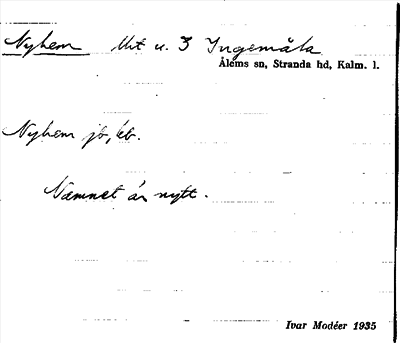 Nyhem Ut u. 3 Ingemåla
Ålems sn, Stranda hd, Kalm. l.
Nyhem jb, kb.
Namnet är nytt.
Ivar Modéer 1935